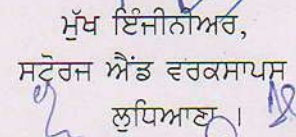 ਮੁੱਖ ਇੰਜੀਨੀਅਰ,
ਸਟੋਰਜ ਐਂਡ ਵਰਕਸਾਪਸ
ਲੁਧਿਆਣਾ ।